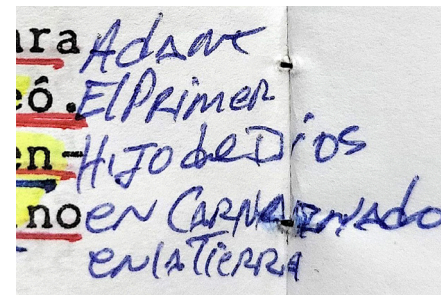 ara Adame
eó. El Primer
en- Hijo de Dios
no en Carne
en la Tierra